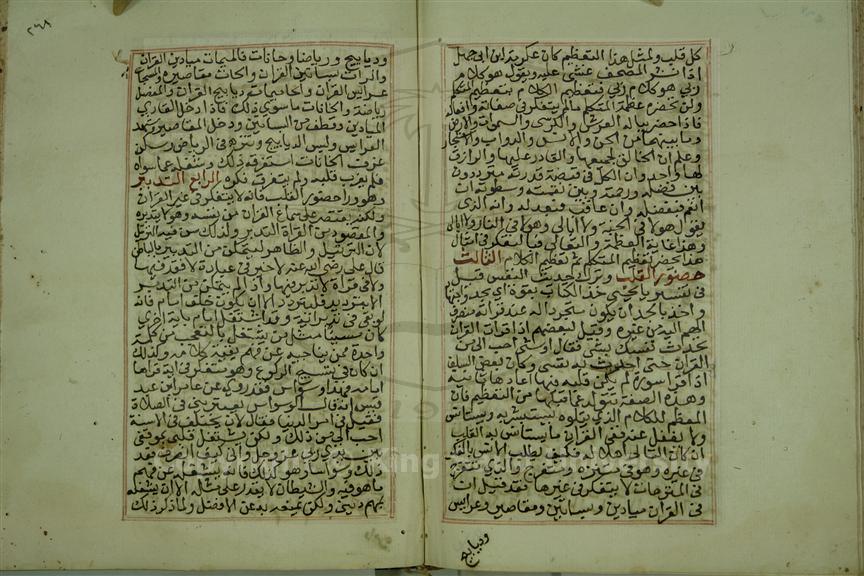 كل قلب ولمثل هذا التعظيم كان عكرمة بن ابي جهل
اذا نشر المصحف غشي عليه ويقول هو كلام
ربي هو كلام ربي فتعظيم الكلام بتعظيم المتكلم
ولن تحضره عظمة المتكلم ما لم يتفكر في صفاته وافعاله
فاذا حضر بباله العرش والكرسي والسموات والارض
وما بينهما من الجن والانس والدواب والاشجار
وعلم ان الخالق لجميعها والقادر عليها والرازق
لها واحد وان الكل في قبضة قدرته مترددون
بين فضله ورحمته وبين نقمته وسطوته ان
انعم فبفضله وان عاقب فبعدله وانه الذي
يقول هولاء في الجنة ولا ابالي وهولاء في النار ولا ابالي
وهذا غاية العظمة والتعالي فبالتفكر في امثال
هذا يحضر تعظيم المتكلم ثم تعظيم الكلام الثالث
حضور القلب وترك حديث النفس قيل
في تفسير يا يحيى خذ الكتاب بقوة اي بجد واجتهاد
واخذه بالجد ان يكون متجردا له عند قراته منصرف
الهم اليه عن غيره وقيل لبعضهم اذا قرات القران
تحدث نفسك بشي فقال اوشي احب الي من
القران حتى احدث به نفسي وكان بعض السلف
اذا قرا سورة لم يكن قلبه فيها اعادها ثانية
وهذه الصفة تتولد عما قبلها من التعظيم فان
المعظم للكلام الذي يتلوه يستبشر به ويستانس
ولا يغفل عنه ففي القران ما يستانس به القلب
ان كان التالي اهلا له فكيف يطلب الانس بالفكر
في غيره وهو في متنزه ومتفرج والذي يتفرج
في المتنزهات لا يتفكر في غيرها فقد قيل ان
في القران ميادين وبساتين ومقاصير وعرايس
وديابيج
٢٦٨
وديابيج ورياضا وخانات فالميمات ميادين القران
والراات بساتين القران والحاات مقاصيره والمسبحات
عرايس القران والحاميمات ديابيج القران والمفصل
رياضه والخانات ما سوى ذلك فاذا دخل القاري
الميادين وقطف من البساتين ودخل المقاصير وشهد
العرايس ولبس الديابيج وتنزه في الرياض وسكن
غرف الخانات استغرقه ذلك وشغله عما سواه
فلم يعزب قلبه ولم يتفرق فكره الرابع التدبر
وهو ورا حضور القلب فانه لا يتفكر في غير القران
ولكنه يقتصر على سماع القران من نفسه وهو لا يتدبره
والمقصود من القراة التدبر ولذلك سن فيه الترتيل
لان الترتيل في الظاهر ليتمكن من التدبر بالباطن
قال علي رضي الله عنه لا خير في عبادة لا فقه فيها
ولا في قراة لا تدبر فيها واذا لم يتمكن من التدبر
الا بترديد فليردد الا ان يكون خلف امام فانه
لو بقي في تدبر اية وقد اشتغل امام باية اخرى
كان مسيئا مثل من يشتغل بالتعجب من كلمة
واحدة ممن يناجيه عن فهم بقية كلامه وكذلك
ان كان في تسبيح الركوع وهو متفكر في اية قراها
امامه فهذا وسواس فقد روي عن عامر بن عبد
قيس انه قال الوسواس يعتريني في الصلاة
فقيل في امر الدنيا فقال لان يختلف في الاسنة
احب الي من ذلك ولكن يشتغل قلبي بموقفي
بين يدي ربي عز وجل واني كيف انصرف فعد
ذلك وسواسا وهو كذلك فانه يشغله عن فهم
ما هو فيه والشيطان لا يقدر على مثله الا ان يشغله
بمهم ديني ولكن يمنعه به عن الافضل ولما ذكر ذلك